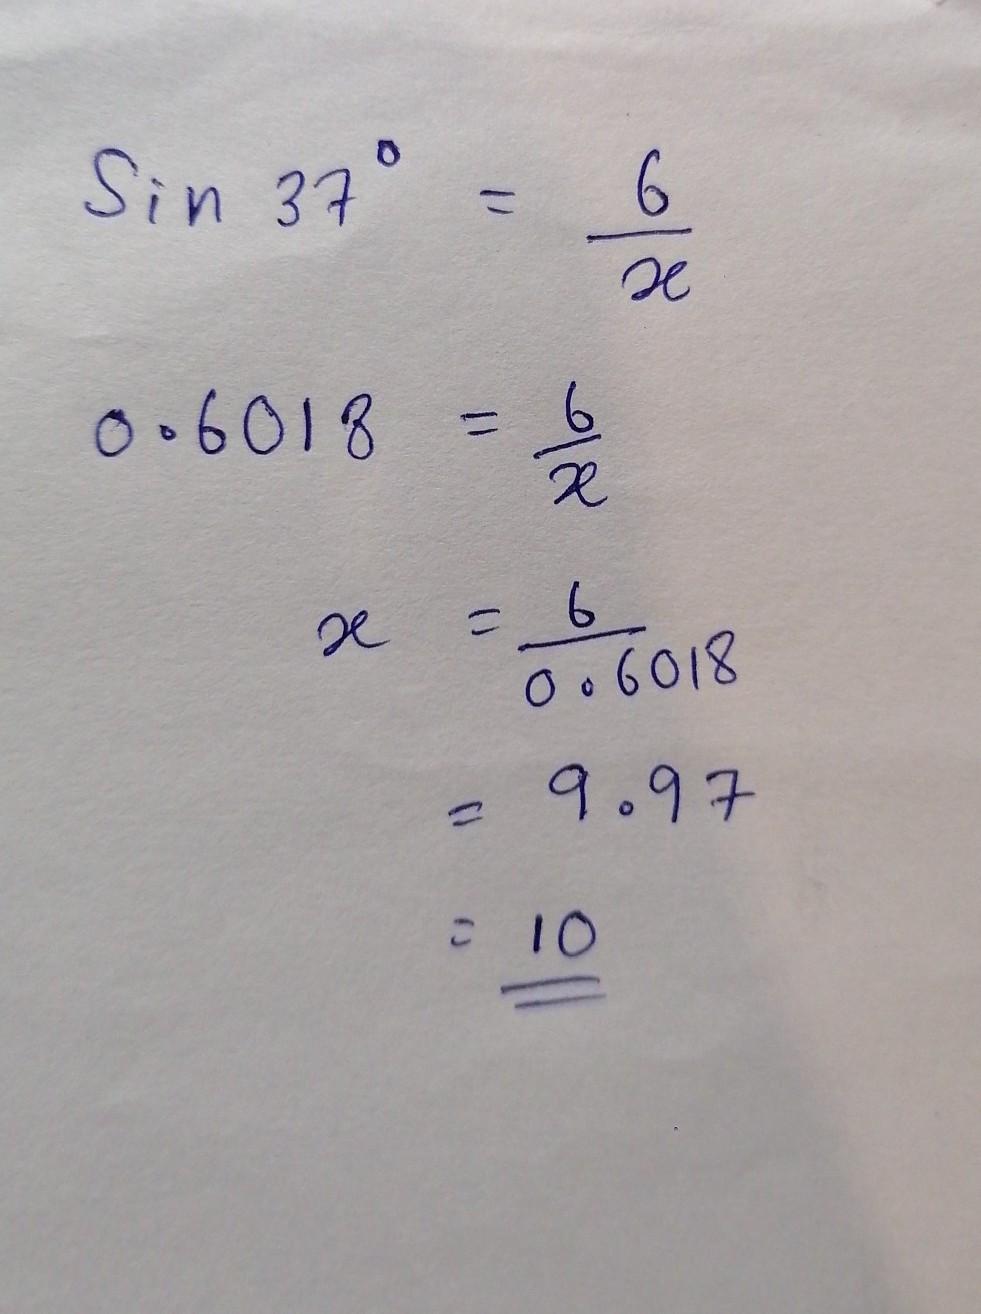 Sin 37° = 6/x
0.6018 = 6/x
x = 6/0.6018
= 9.97
= 10